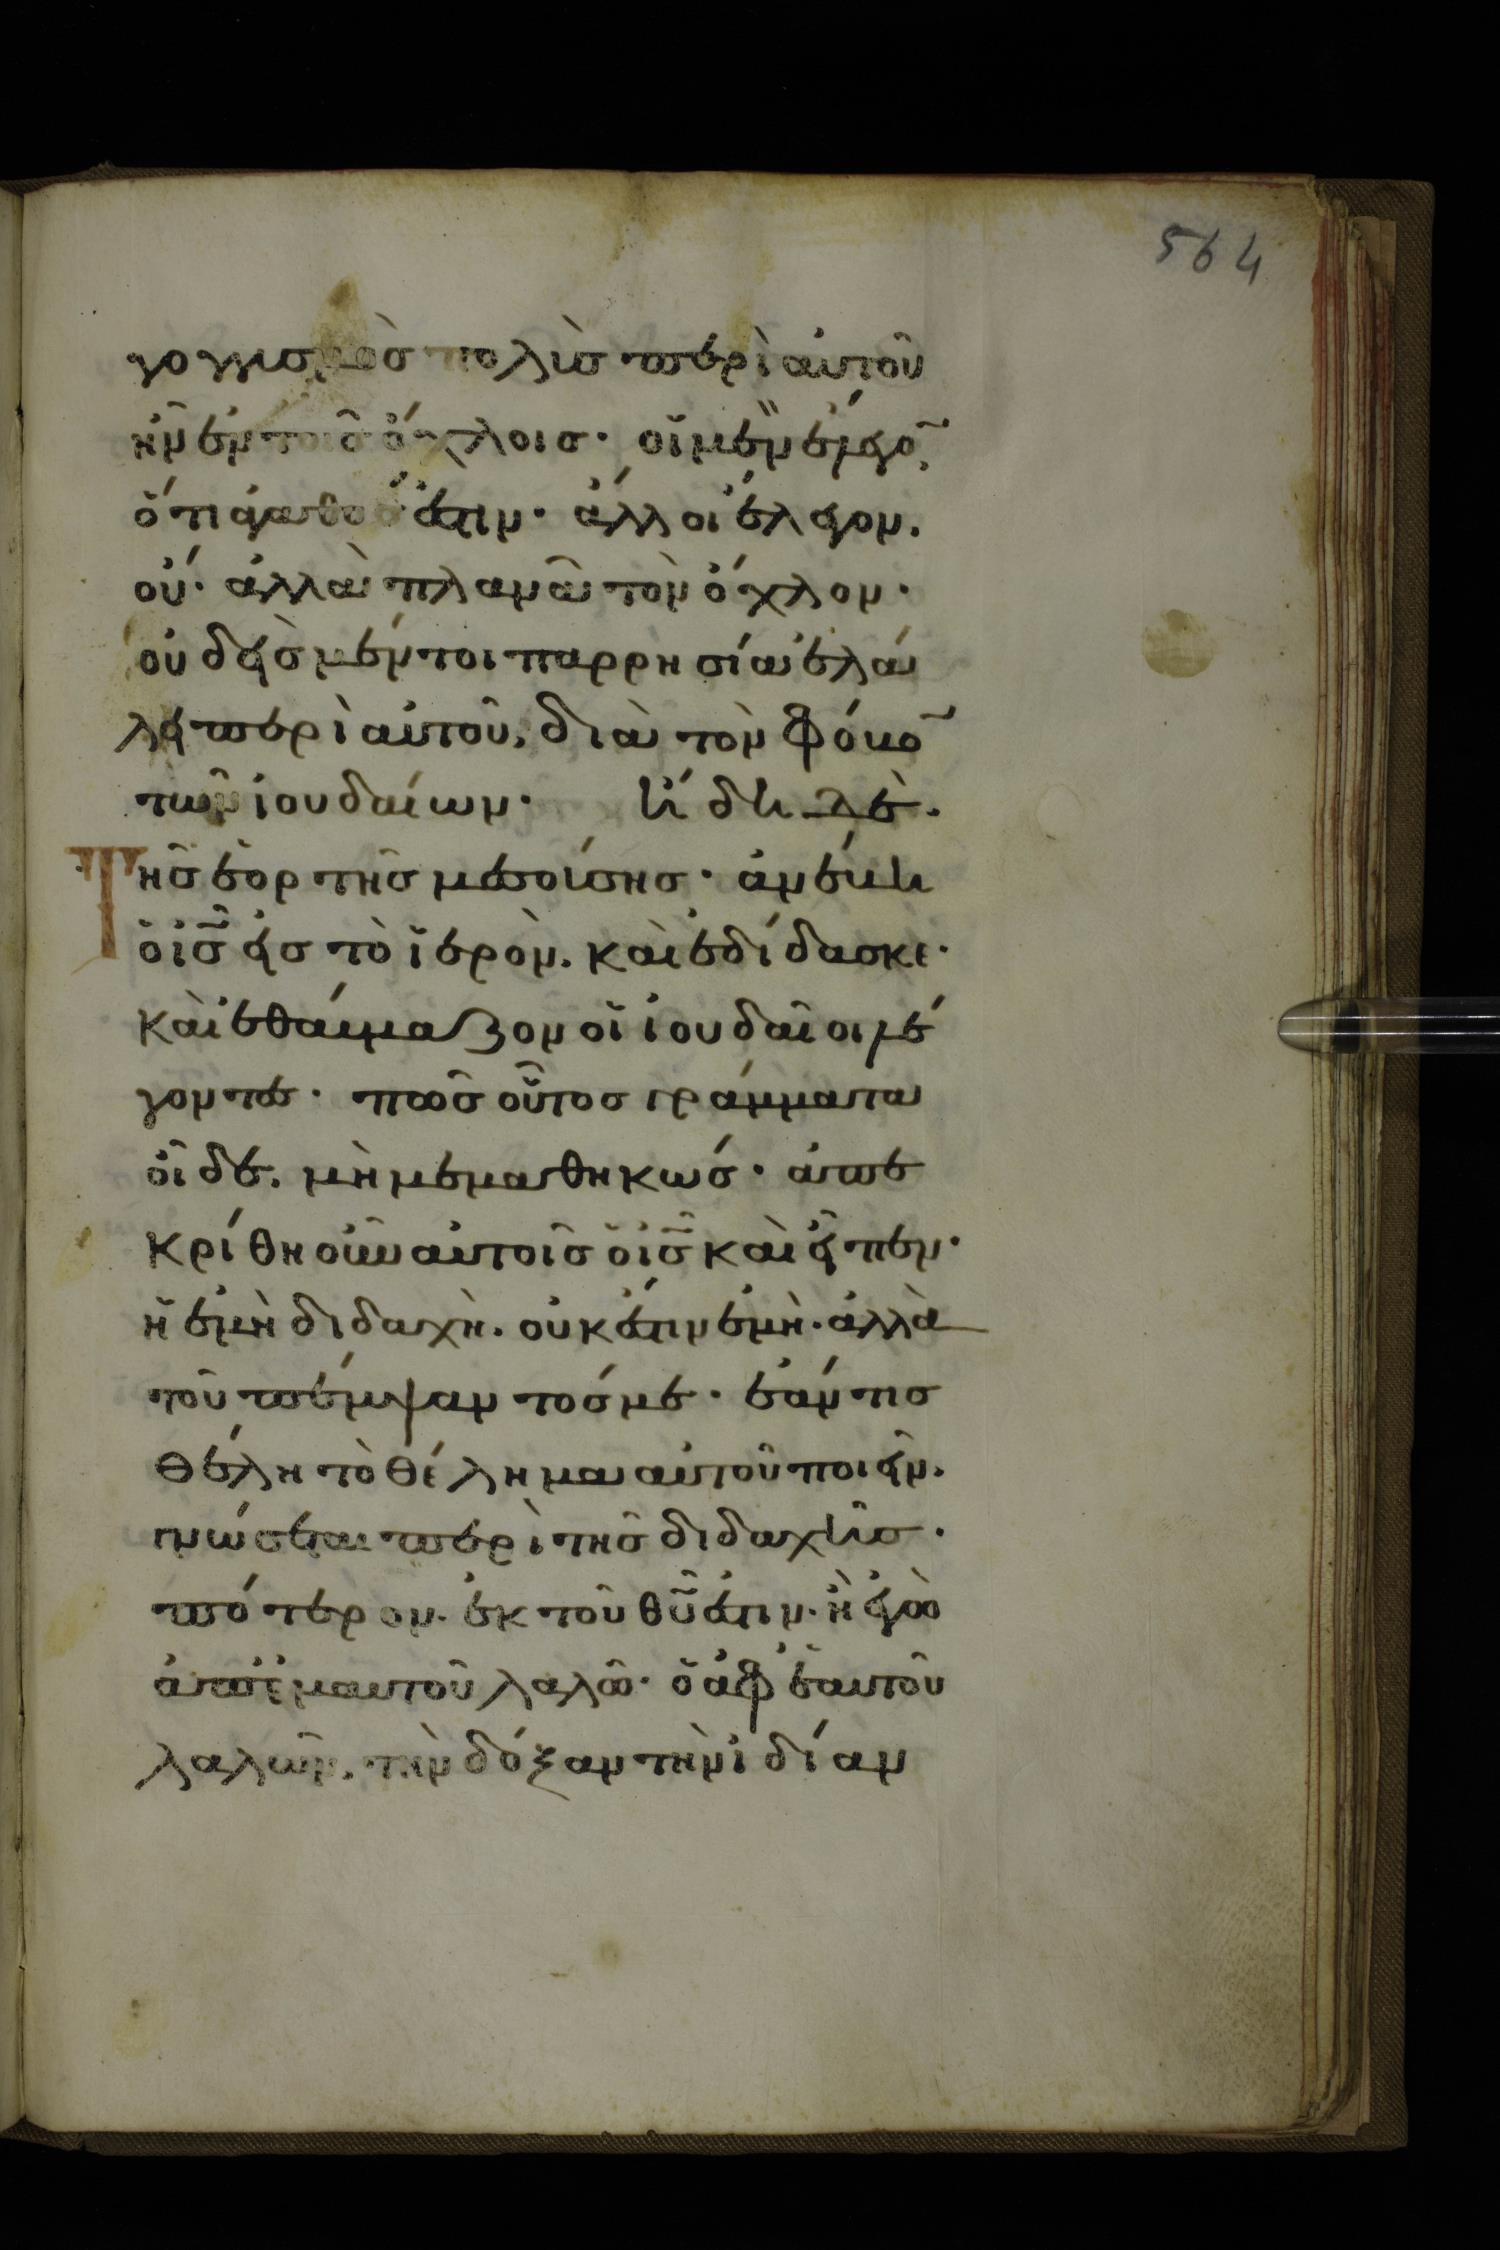 564
γογγυσμὸσ πολὺσ περὶ αὐτοῦ
ἦν ἐν τοῖσ ὄχλοισ· οἱ μὲν ἔλεγο͂,
ὅτι ἀγαθόσ ἐστιν· ἄλλοι ἔλεγον.
οὔ· ἀλλὰ πλανᾶ τὸν ὄχλον·
οὐδεὶσ μέντοι παρρησία ἐλά
λει περὶ αὐτοῦ, διὰ τὸν φόβο͂
τῶν ἰουδαίων·
Τῆσ ἑορτῆσ μεσούσησ· ἀνέβη
ὁ ισ͂ εἰσ τὸ ἱερὸν. καὶ ἐδίδασκε·
καὶ ἐθαύμαζον οἱ ἰουδαῖοι λέ
γοντεσ· πῶσ οὗτοσ γράμματα
οἶδε. μὴ μεμαθηκώσ· ἀπε
κρίθη οὖν αὐτοῖσ ὁ ισ͂ καὶ εἶπεν·
ἡ ἐμὴ διδαχὴ. οὐκ ἔστιν ἐμὴ· ἀλλὰ
τοῦ πέμψαντόσ με· ἐάν τισ
θέλη τὸ θέλημα αὐτοῦ ποιεῖν.
γνώσεται περὶ τῆσ διδαχῆσ·
πότερον. ἐκ τοῦ θῦ ἐστιν. ἢ ἐγὼ
ἀπ' ἐμαυτοῦ λαλῶ· ὁ ἀφ' ἑαυτοῦ
λαλῶν. τὴν δόξαν τὴν ἰδίαν